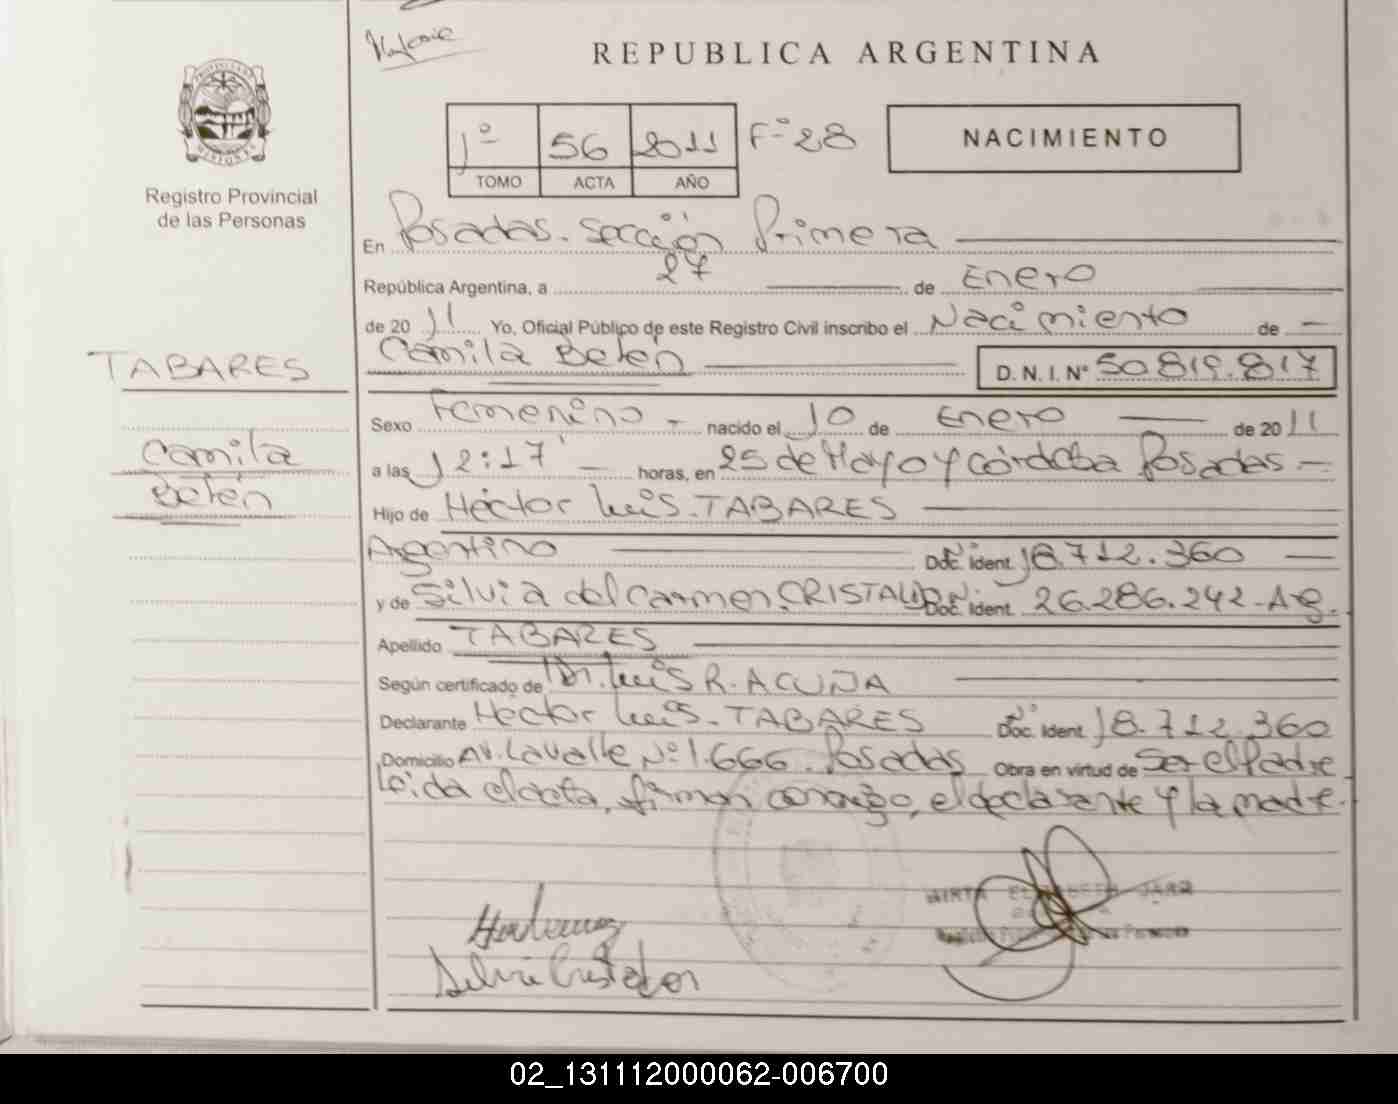 REPUBLICA ARGENTINA
PROVINCIA DE MISIONES
Registro Provincial
de las Personas
1º 56 2011 Fº 28
TOMO ACTA AÑO
NACIMIENTO
En Posadas. Sección Primera
República Argentina, a 27 de Enero
de 2011 Yo, Oficial Público de este Registro Civil inscribo el Nacimiento de
Camila Belén D.N.I. Nº 50.819.817
TABARES
Camila
Belén
Sexo Femenino nacido el 10 de Enero de 2011
a las 12:17' horas, en 25 de Mayo y Córdoba Posadas
Hijo de Héctor Luis. TABARES
Argentino Doc. Ident. Nº 18.712.360
y de Silvia del Carmen. Doc. Ident. 26.286.242-Arg.
Apellido TABARES
Según certificado de Dr. Luis R. ACUÑA
Declarante Héctor Luis. TABARES Doc. Ident. Nº 18.712.360
Domicilio Av. Lavalle Nº 1.666. Posadas Obra en virtud de Ser el Padre
Leída el acta, firman conmigo, el declarante y la madre.
MIRTA ELIZABETH JARA
02_131112000062-006700